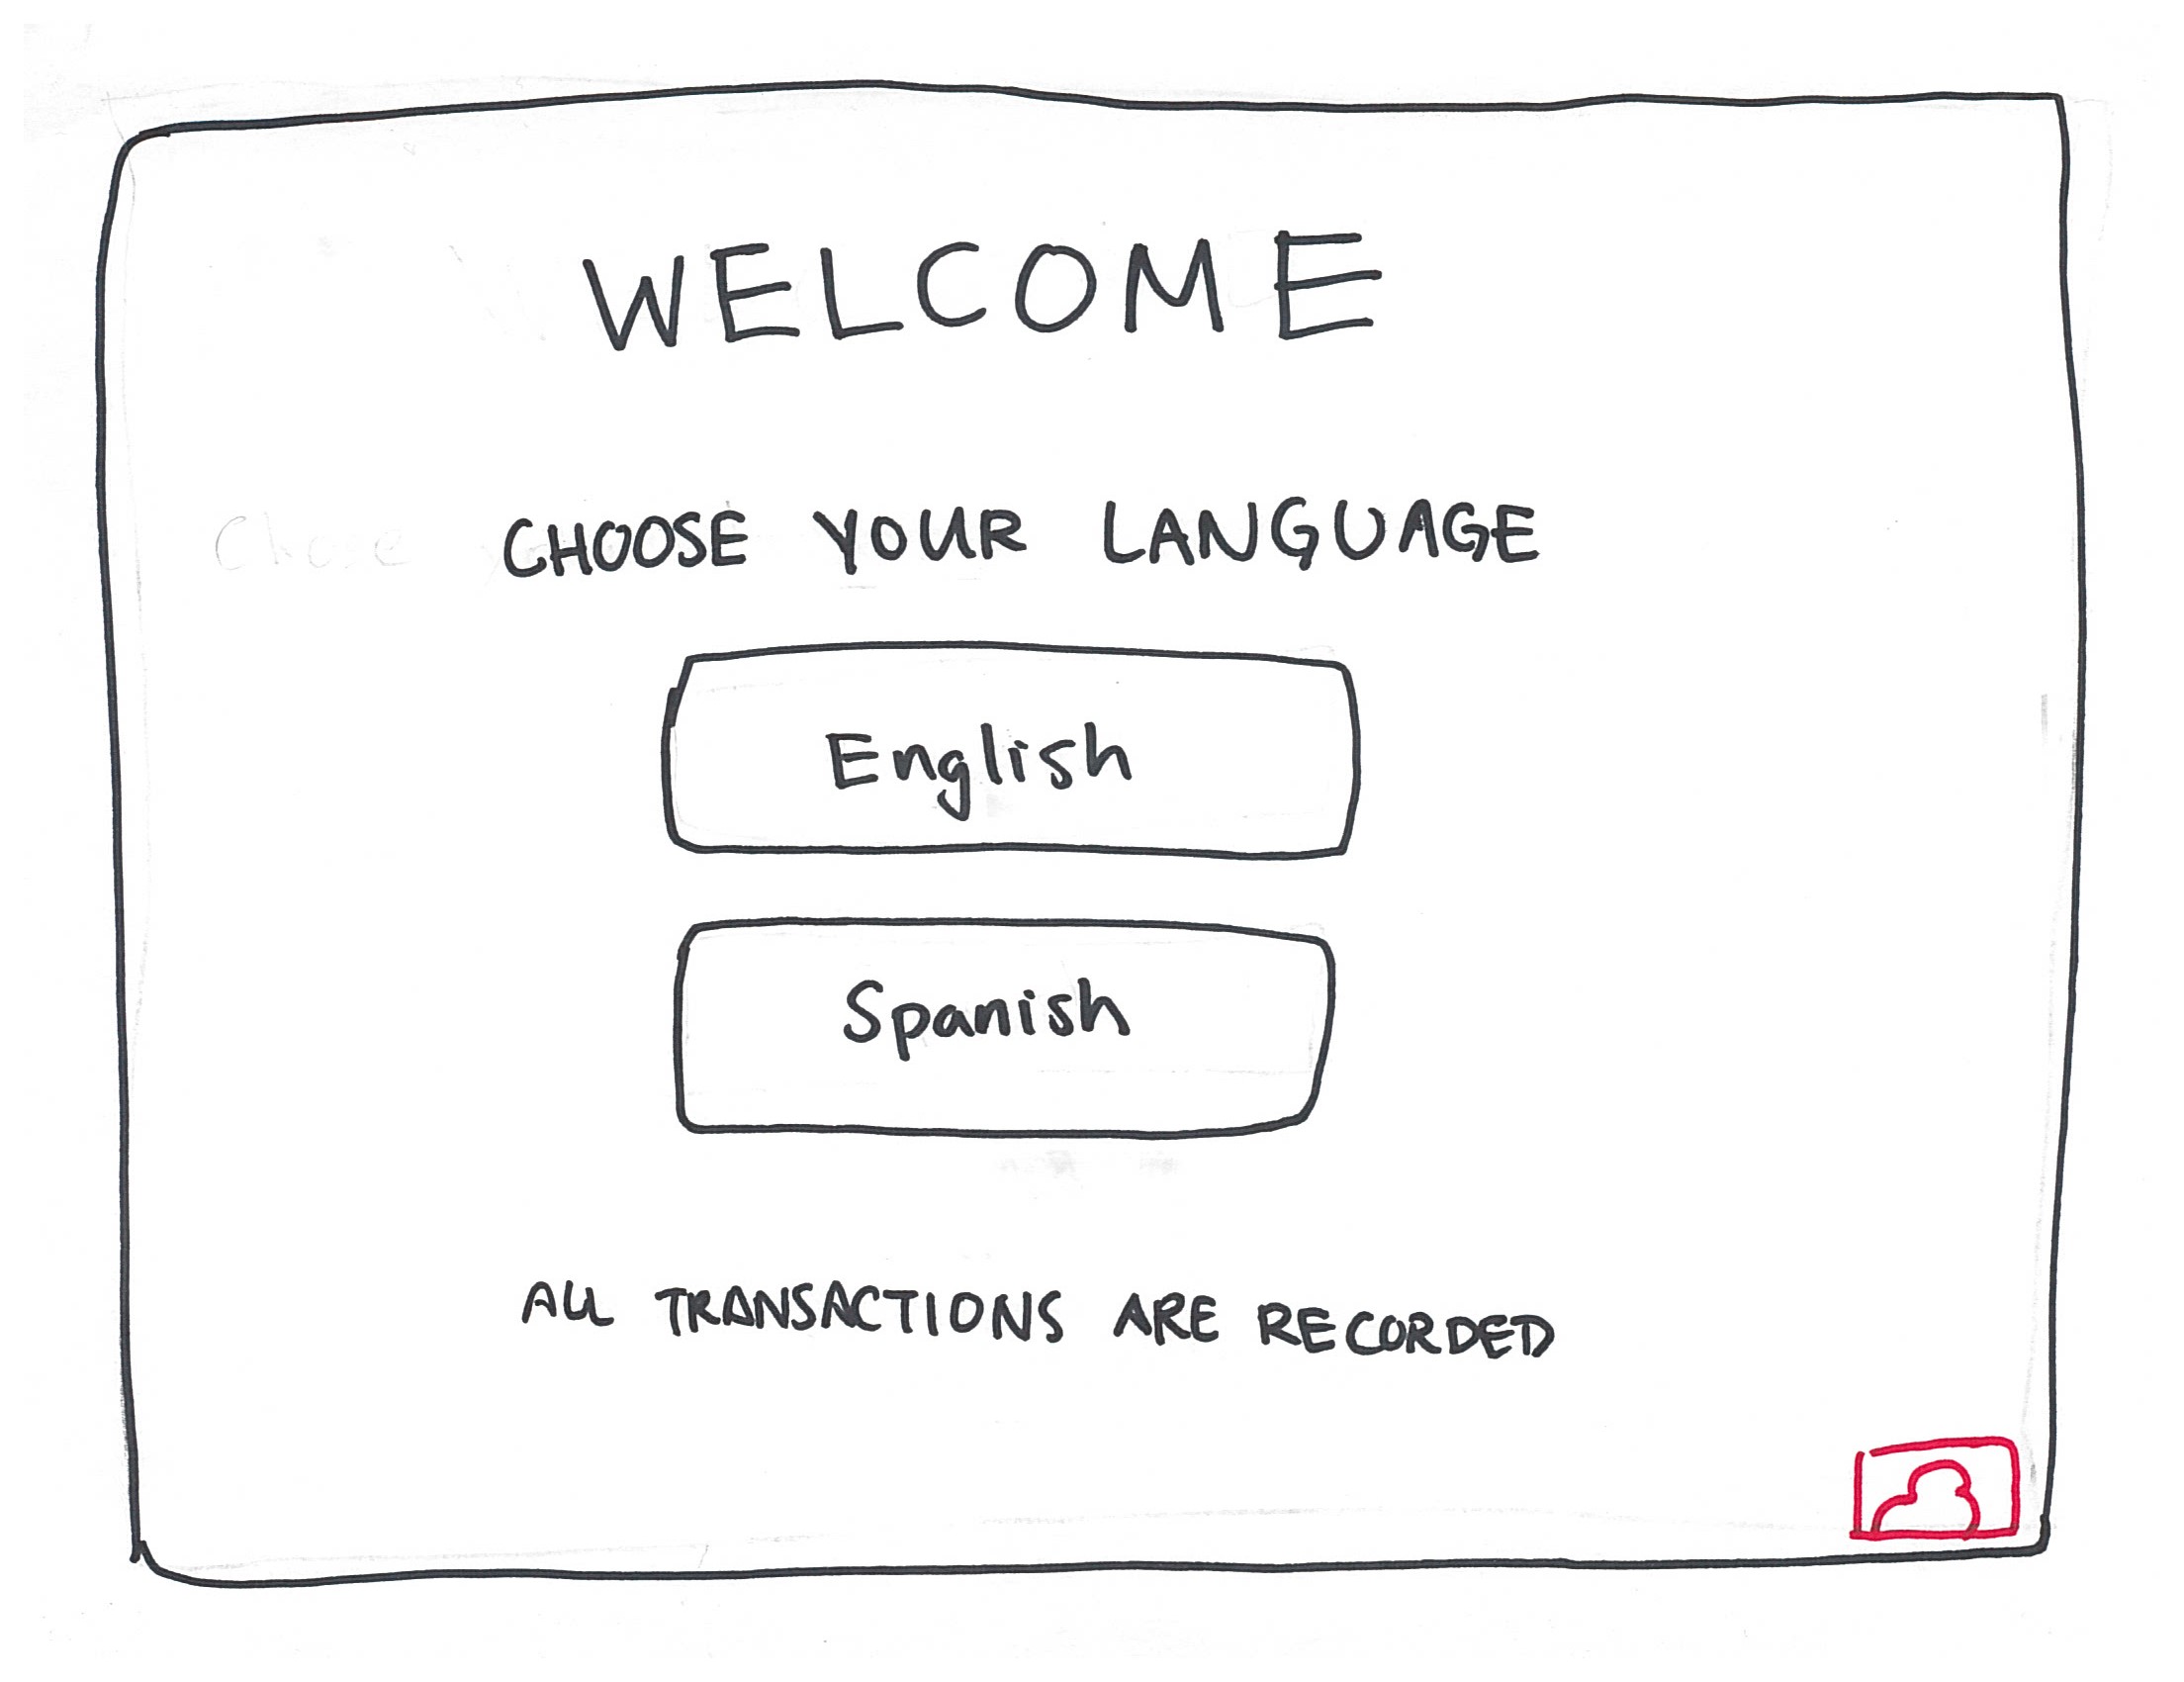 WELCOME
CHOOSE YOUR LANGUAGE
English
Spanish
ALL TRANSACTIONS ARE RECORDED